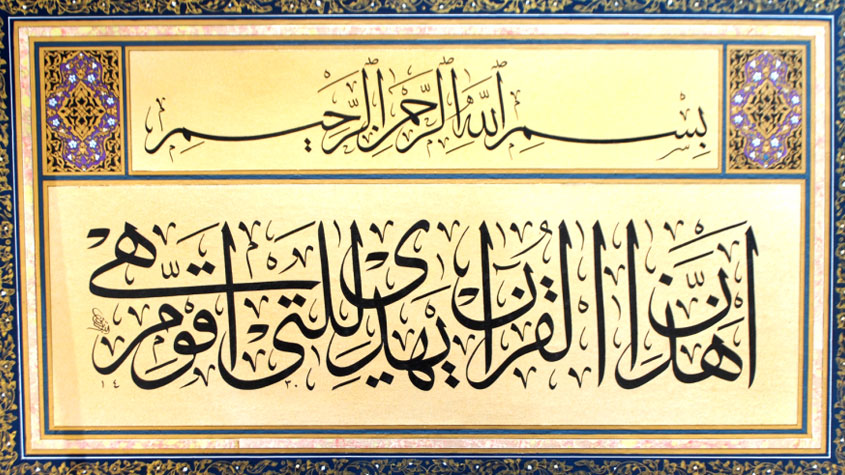 بِسْمِ اللّٰهِ الرَّحْمٰنِ الرَّحِيمِ
إنَّ هٰذَا القُرْآنَ يَهْدِي لِلَّتِي هِيَ أَقْوَمُ
١٤ ٣٠